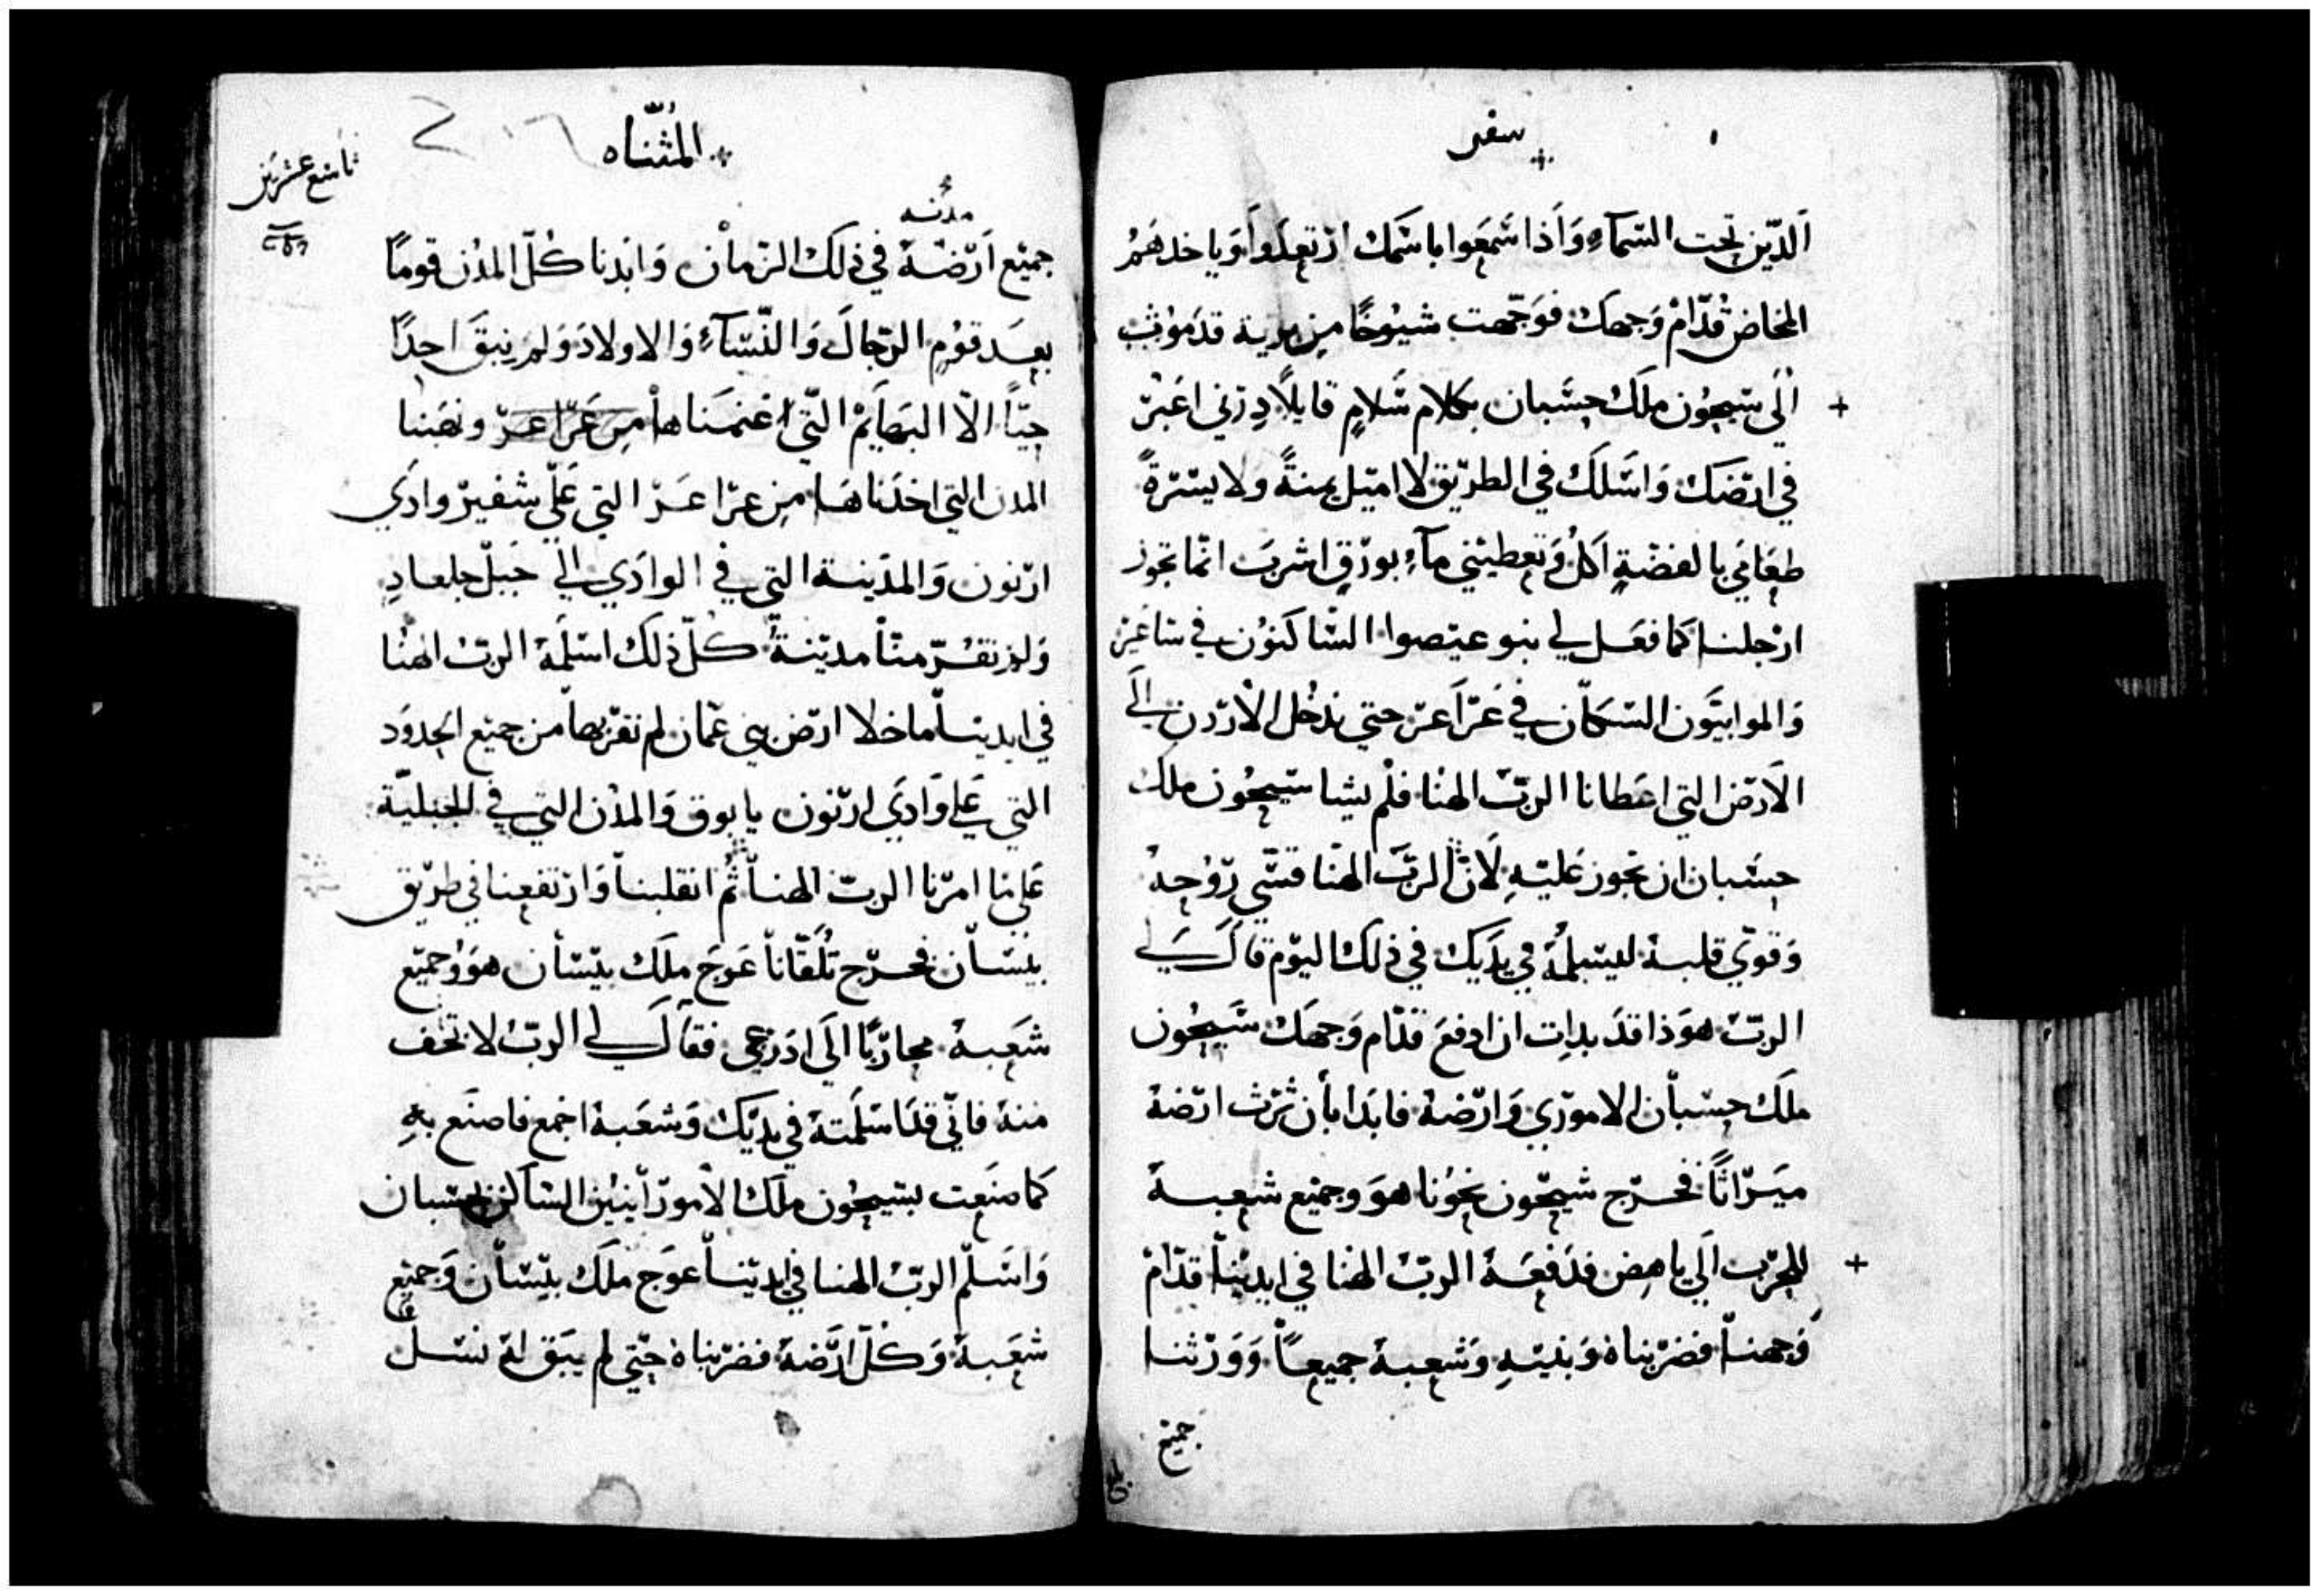 سفر
اَلدّين تحت السّماءِ وَاَذا سَمعَوا باسَمك ارتعِدَوا وَياخدهَمُ
المخاض قُدّامْ وَجهكَ فوَجّهت شيُوخًا مِن برية قدَموُث
اِلَى سَيحِوُن مِلكَ حِسَبان بكلام سَلامٍ قايلًا دِرْني اعَبُرْ
في ارضَكَ وَاسَلكَ في الطريْق لا امَيل يمنةً ولا يسَرةً
طعَامَي بالفضْةِ اَكلُ وَتعطيْني ماءِ بورْقٍ اشربَ انمّا تجوز
ارْجلنا كما فعَل لي بنو عيَصوا السّاكنوُن في ساعَير
وَالموابيَّون السَكاّن في عَرَاعَر حتي ندْخُل الاْردن اِلَي
الاَرض التي اعَطانا الربّ الهنْا فلْم يشا سَيحِوُن ملك
حِسَبان ان نجوز عَليَهِ لاَنْ الربَّ الهنْا قسَّي رُوْحِهُ
وَقوّي قلبهُ ليسَلمُهُ في يدَيكَ في ذلك اليوْم قاَل لي
الربّ هوَذا قدَ بدات ان ادفعَ قدّام وَجهَك سَيحِوُن
ملَك حِسَباْن الاموْري وَارْضهُ فابَدا باْن تَرْث ارْضهُ
ميَرْاثًا فخرْج سَيحّون نحِوُنا هوَ وجميْع شعِبهُ
للحِرْب اَلي ياهِض فدَفعَهُ الربّ الهْنا في ايديْنا قدّامْ
وَجهنا فضرْبناهُ وَبنيَهِ وَشعِبهُ جميعِاً وَوَرْثنا
جميْع
المُثنّاه
تاسَع عشرين
مدنه
جميْع اَرْضهُ في ذلكَ الزمانْ وَابَدنا كُلّ المدُن قومًا
بعِدَ قوُم الرّجالَ وَالنّسَاءِ وَالاولادَ وَلم نبقَ احِدًا
حِيًا الاّ البهَايَمْ التّي اغنمَناها مِن عَرَاعَرْ ونهَبنا
المدن التي اخدَناهَا مِن عَرَاعَر التي عَلّي شفيرْ وادَي
ارْنون وَالمدَينة التي في الوادَي الي جَبلْ جلعاد
وَلم تفرّ مناّ مديْنةً كُلّ ذلَك اسَلمَهُ الربّ الهنُا
في ايديَنا ما خلا ارْض بني عَمّان لم نقرْبها من جميْع الحِدوُدَ
التي عَلي وَادَي ارْنون يابوق وَالمدُن التي في الجبليّة
عَلي ما امرْنا الربّ الهنا ثُم انقلبنا وَارتفعِنا في طريْق
بيْسَاْن فخرْج تُلقّاناَ عوَجَ ملَك بيْسَاْن هوَ وُجميْع
شعَبهُ محِارْبًا الَي ادَرْعَي فقاَل لي الربّ لا تخف
منهُ فانّي قدَ اسَلمَتهُ في يدَيْك وَشعَبهُ اجمع فاصنَع بهِ
كما صنَعِت بسَيحِوُن ملَك الاْموراْنييْن السَاكن بحِسَبان
وَاسَلّم الربّ الهنا في ايديْنا عوَجَ ملَك بيْسَاْن وَجميْع
شعَبهُ وَكُلّ ارْضهُ فضرْبناهُ حِتّي لم يبَق لهُ نسَلْ